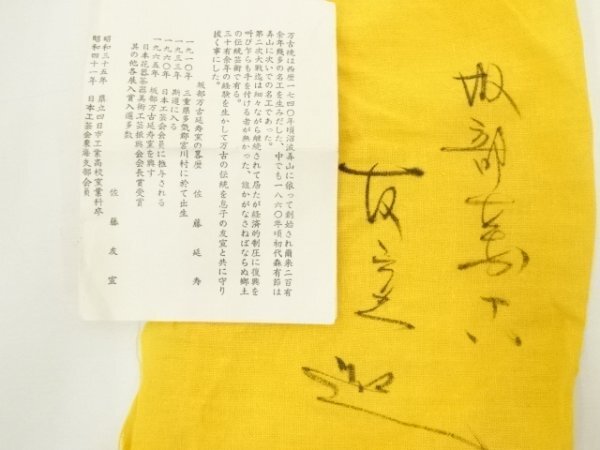 万古焼は西暦一七四〇年頃沼波弄山に依って創始され爾来二百有
余年幾多の名工を生みだした、中でも一八六〇年頃初代森有節は
弄山に次いでの名工であった。
第二次大戦迄は細々ながら継続されて居たが経済的制圧に復興を
叫び乍らも手を付ける者が無かった、誰かがなさねばならぬ郷土
の伝統芸術で有る。
三十有余年の経験を生かして万古の伝統を息子の友宣と共に守り
抜く事にした。
坂部万古延寿窯の略歴　佐藤延寿
一九一〇年　三重県多気郡宮川村に於て出生
一九三三年　斯道に入る
一九六〇年　日本工芸会会員に推与される
一九六五年　坂部万古延寿窯を興す
日本花器茶器美術工芸振興会会長賞受賞
其の他各展入賞入選多数
佐藤友宣
昭和三十五年　県立四日市工業高校窯業科卒
昭和四十一年　日本工芸会東海支部会員
坂部万古
友宣